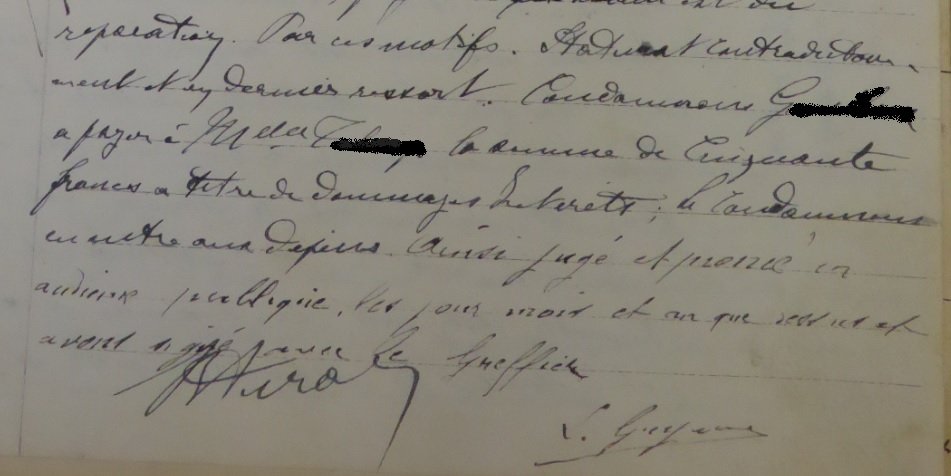 est du
reparation. Par ces motifs. Statuant contradictoire-
ment et en dernier ressort. Condamnons G
a payer à M la somme de Cinquante
francs a titre de dommages Interets ; le Condamnons
en outre aux depens. Ainsi jugé et prononcé en
audience publique, les jour mois et an que dessus et
avons signé avec le Greffier